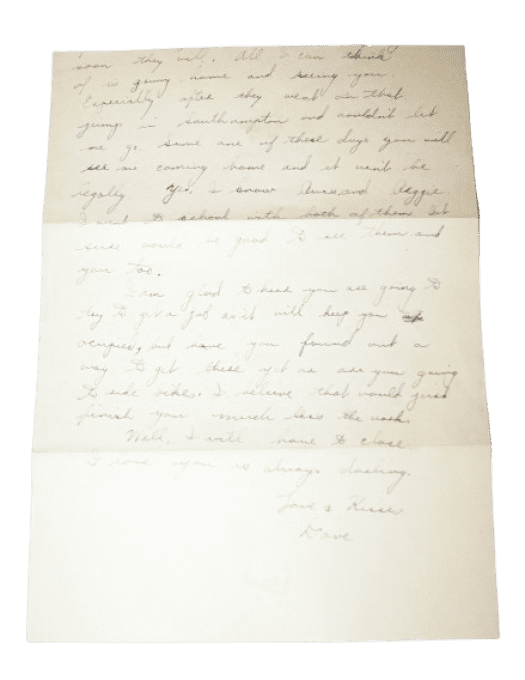 soon they will. All I can think
of is going home and seeing you.
Especially after they went on that
jump in Southampton and wouldn't let
me go. Some one of these days you will
see me coming home and it won't be
legally. Yes, I know and Reggie.
I went to school with both of them. It
sure would be good to see them and
you too.
I am glad to hear you are going to
try to get a job as it will keep you
ocupied, but have you found out a
way to get there yet or are you going
to ride bike. I believe that would just
finish you much less the work.
Well, I will have to close.
I love you as always darling.
Love & Kisses
Dave